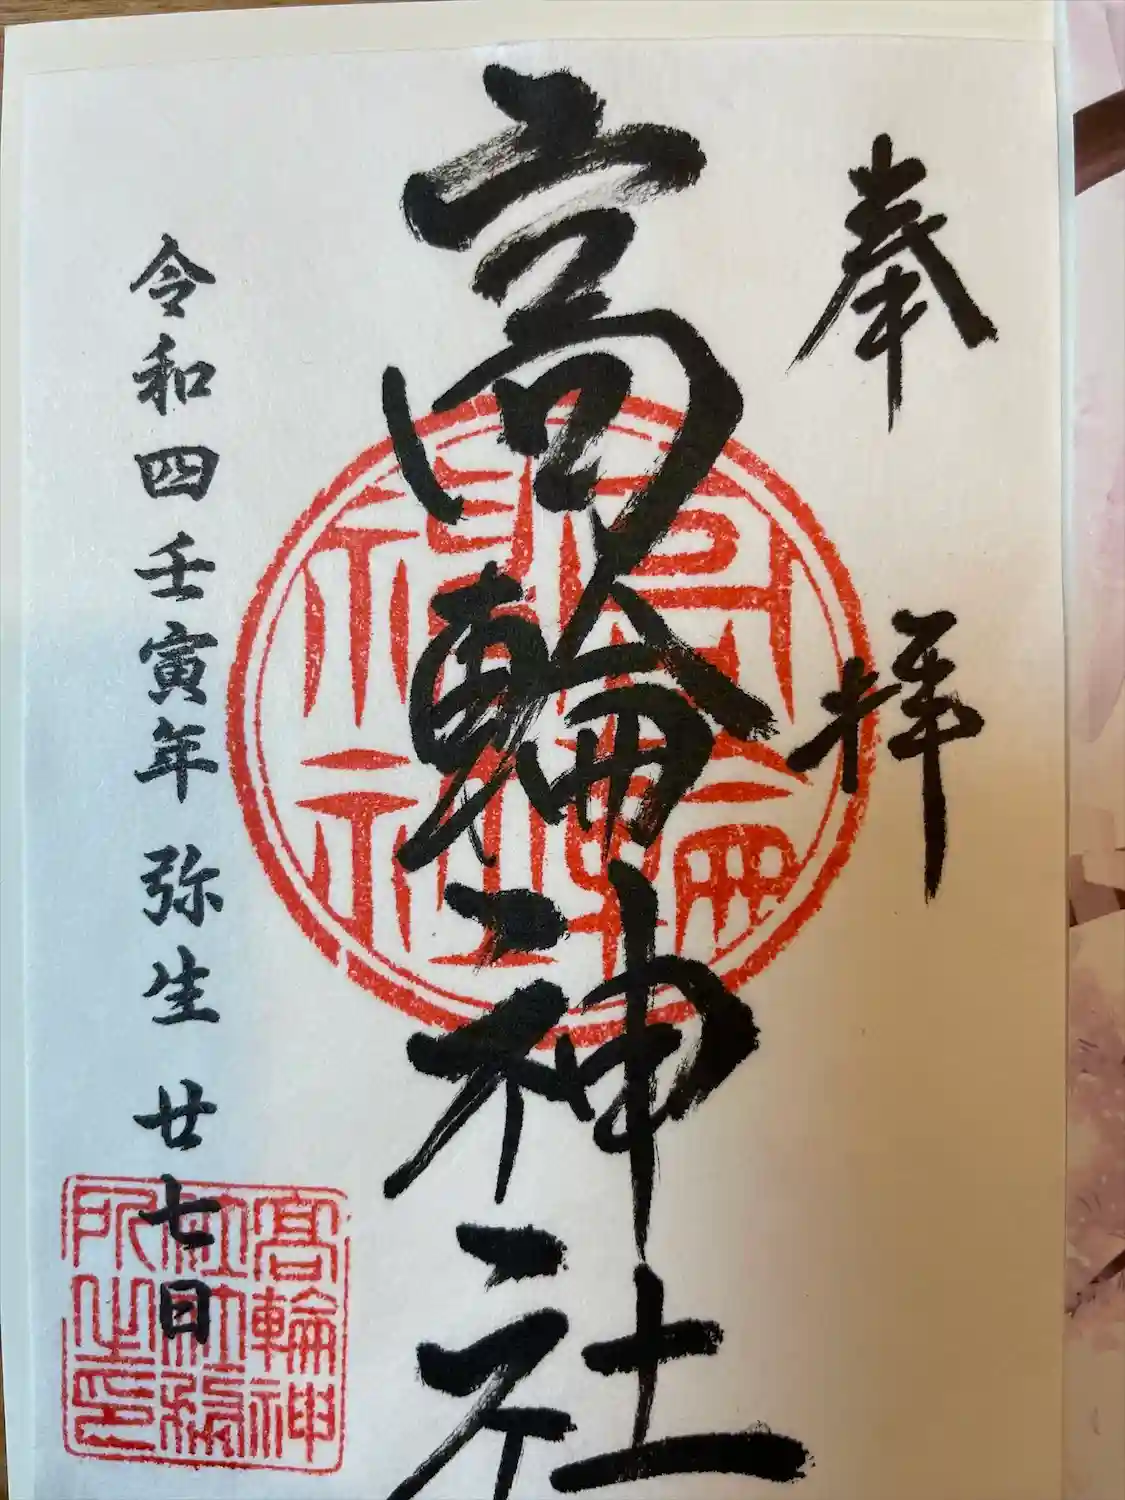 奉拝
高輪神社
令和四壬寅年 弥生 廿七日
高輪神社
高輪神社社務所之印